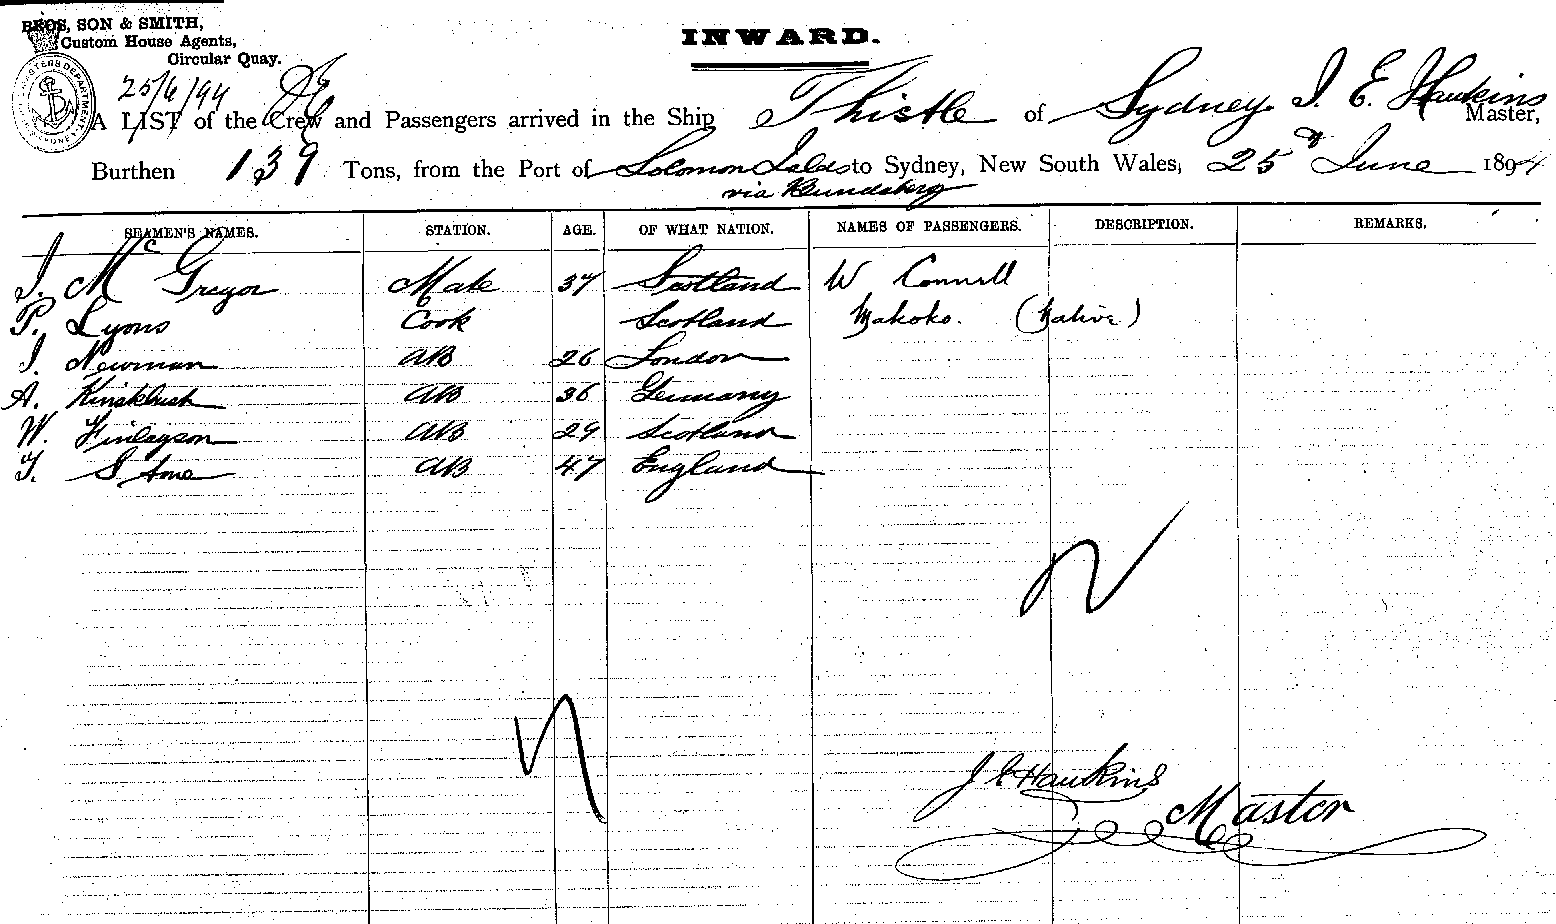 BROS, SON & SMITH,
Custom House Agents,
Circular Quay.
INWARD.
25/6/94
A LIST of the Crew and Passengers arrived in the Ship Thistle of Sydney J. E. Hawkins Master,
Burthen 139 Tons, from the Port of Solomon Islds to Sydney, New South Wales, 25th June 1894
via Bundaberg
SEAMEN'S NAMES. STATION. AGE. OF WHAT NATION. NAMES OF PASSENGERS. DESCRIPTION. REMARKS.
J. McGregor Mate 37 Scotland W Connell
P. Lyons Cook Scotland Makoko. (Native)
J. Newman AB 26 London
A. AB 36 Germany
W. Finlayson AB 29 Scotland
T. Stone AB 47 England
J E Hawkins
Master